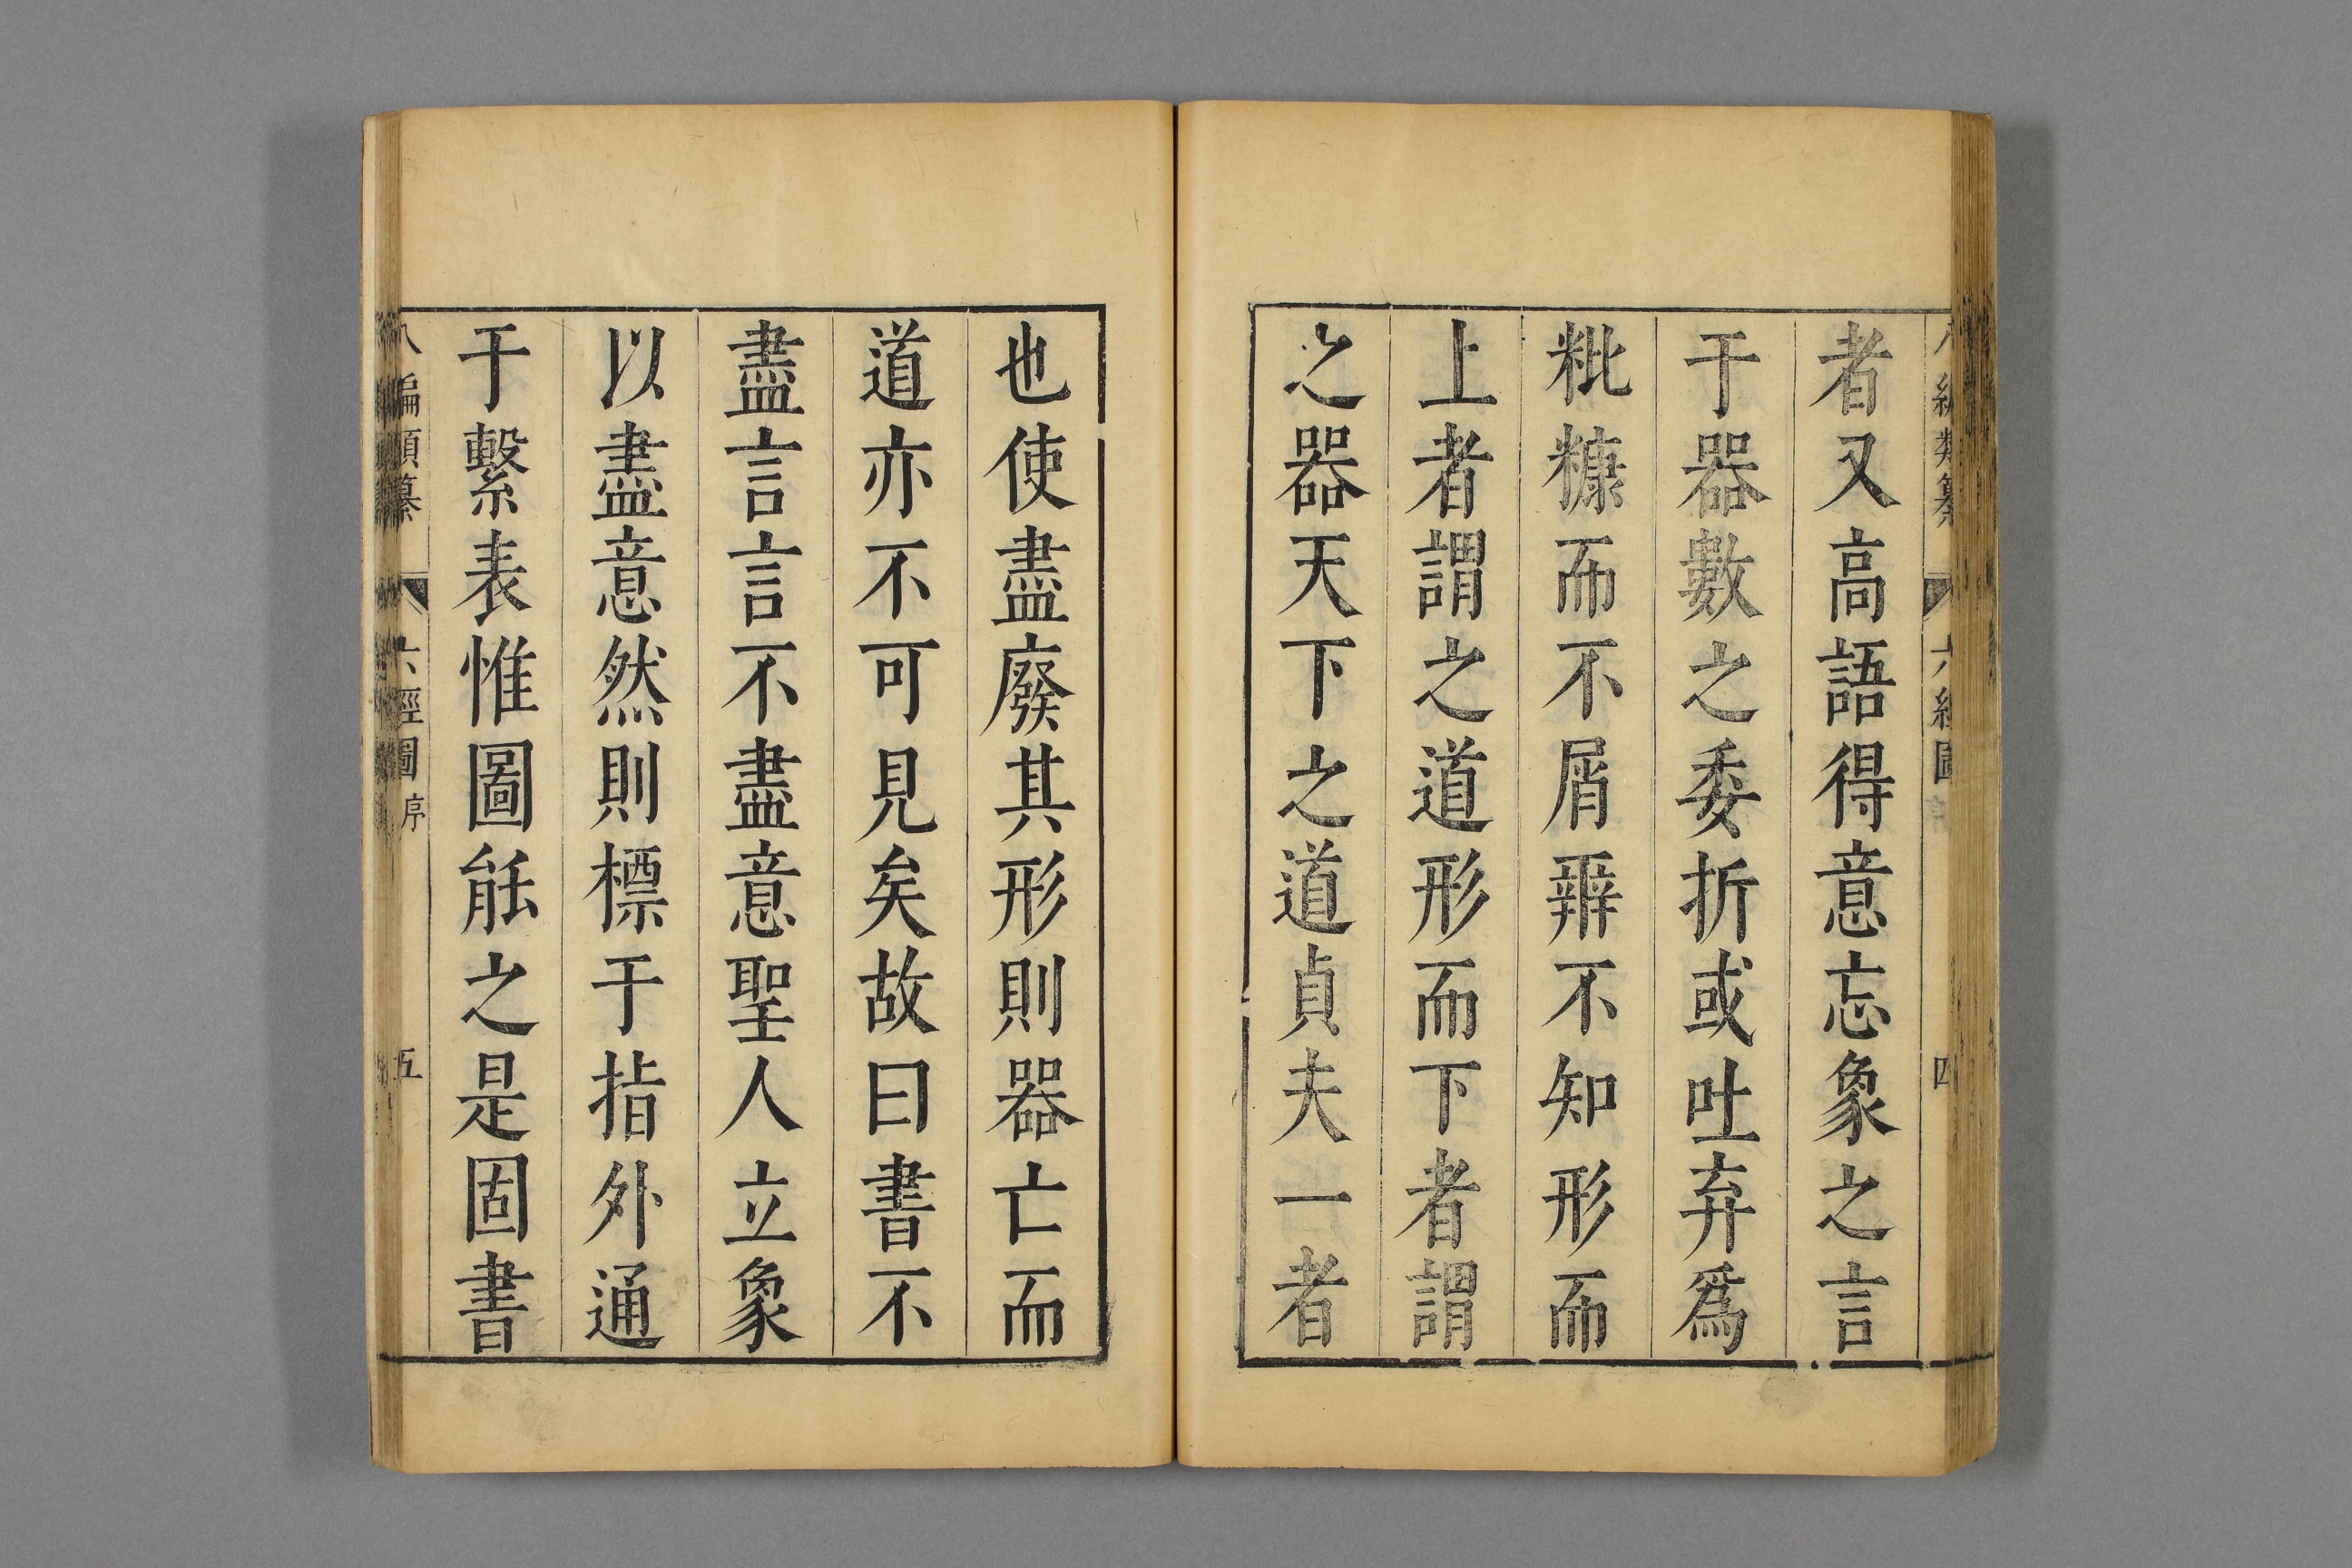 者又高語得意忘象之言
于器數之委折或吐弃爲
粃糠而不屑辨不知形而
上者謂之道形而下者謂
之器天下之道貞夫一者
也使盡廢其形則器亡而
道亦不可見矣故曰書不
盡言言不盡意聖人立象
以盡意然則標于指外通
于繫表惟圖能之是固書
八編類纂 六經圖 序 五